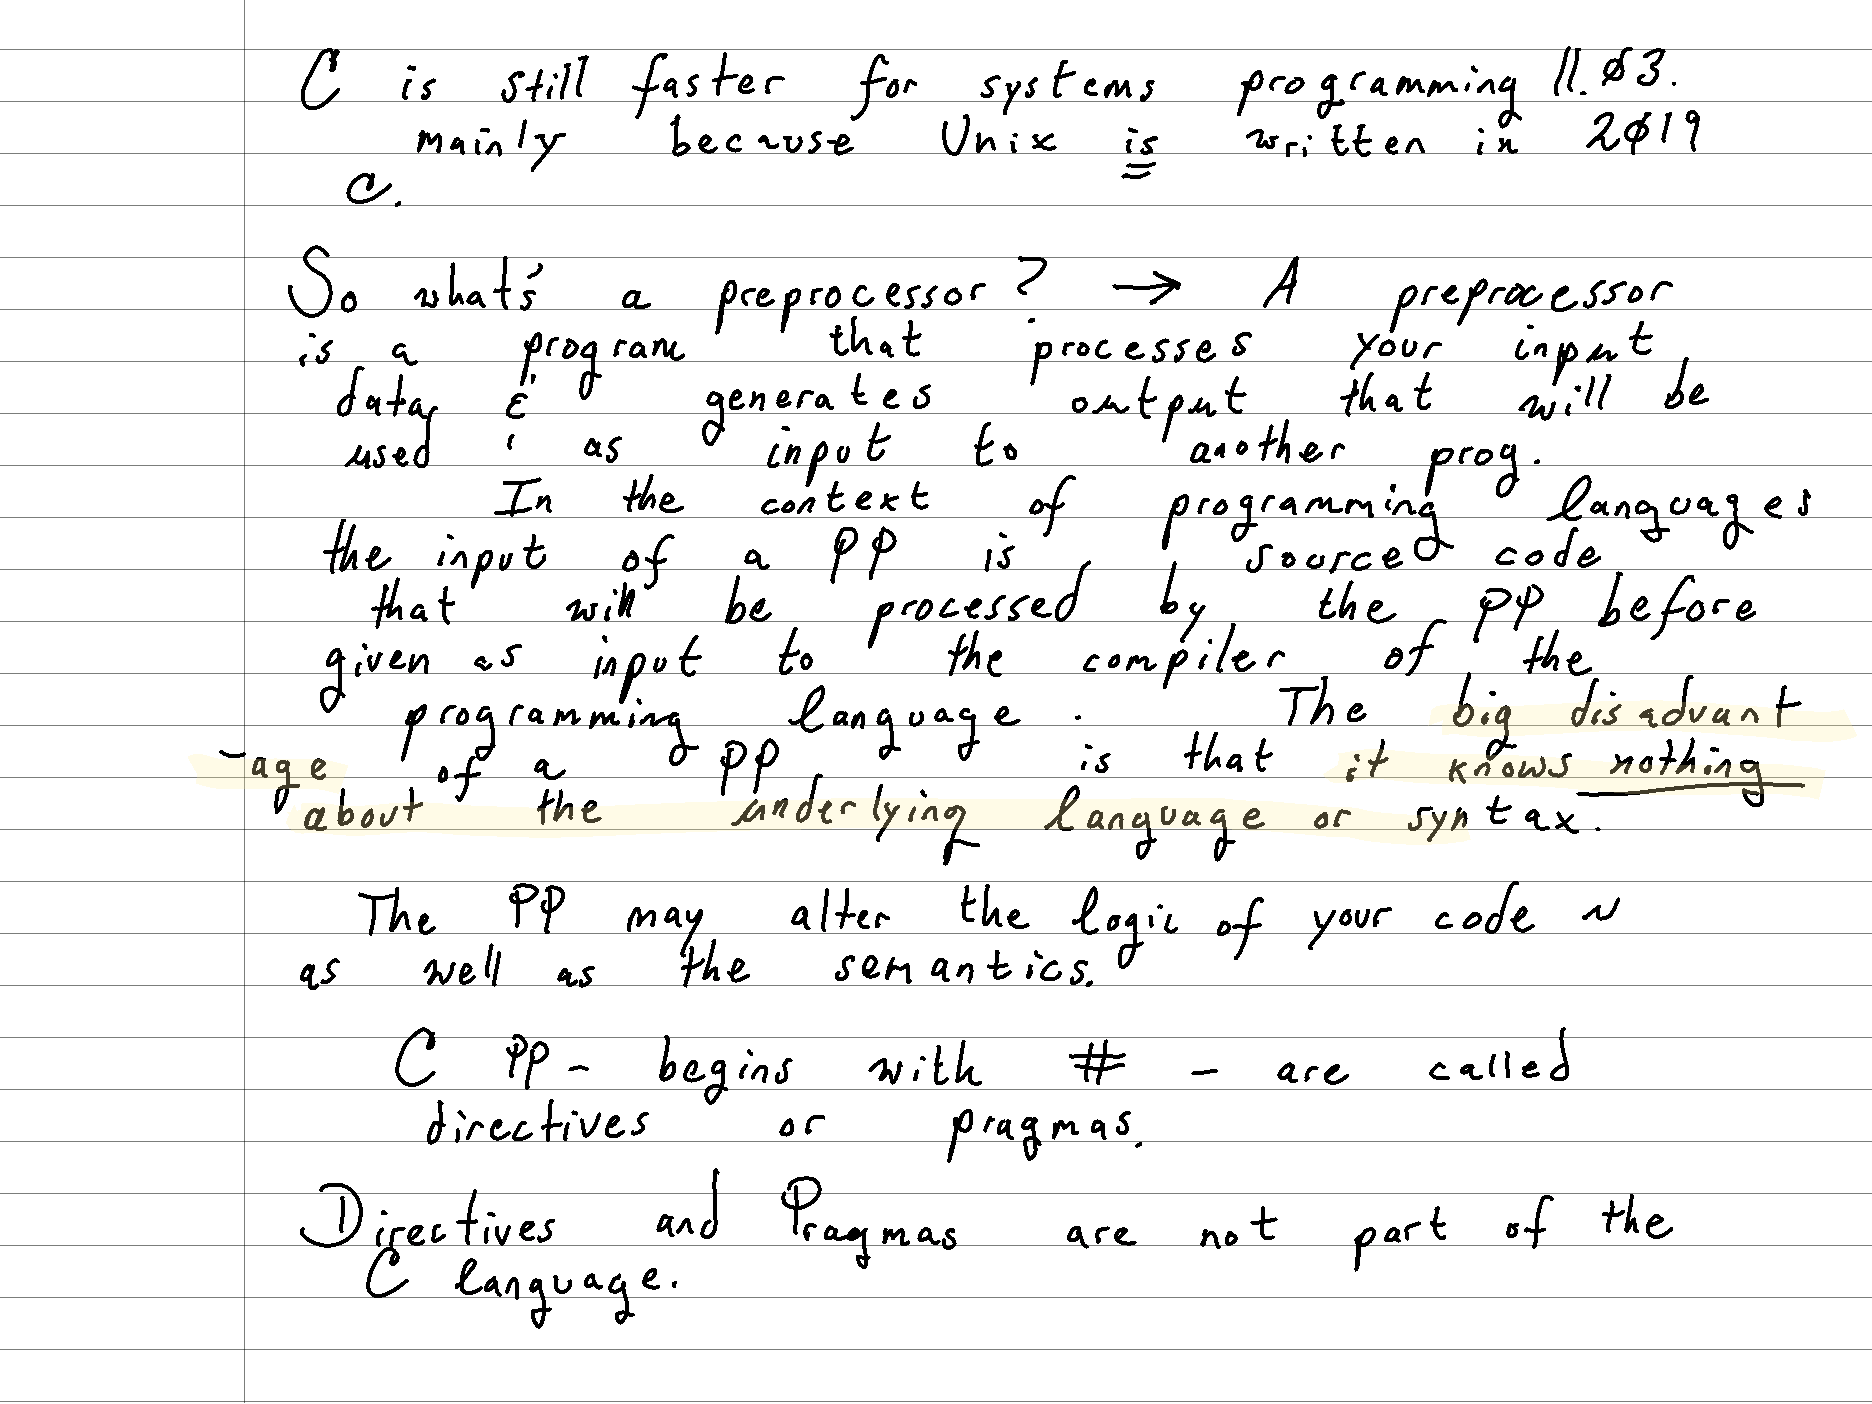 C is still faster for systems programming 11.03.
mainly because Unix is written in 2019
C.
So what's a preprocessor? → A preprocessor
is a program that processes your input
data & generates output that will be
used as input to another prog.
In the context of programming languages
the input of a PP is source code
that will be processed by the PP before
given as input to the compiler of the
programming language. The big disadvant
-age of a PP is that it knows nothing
about the underlying language or syntax.
The PP may alter the logic of your code ~
as well as the semantics.
C PP - begins with # - are called
directives or pragmas.
Directives and Pragmas are not part of the
C language.